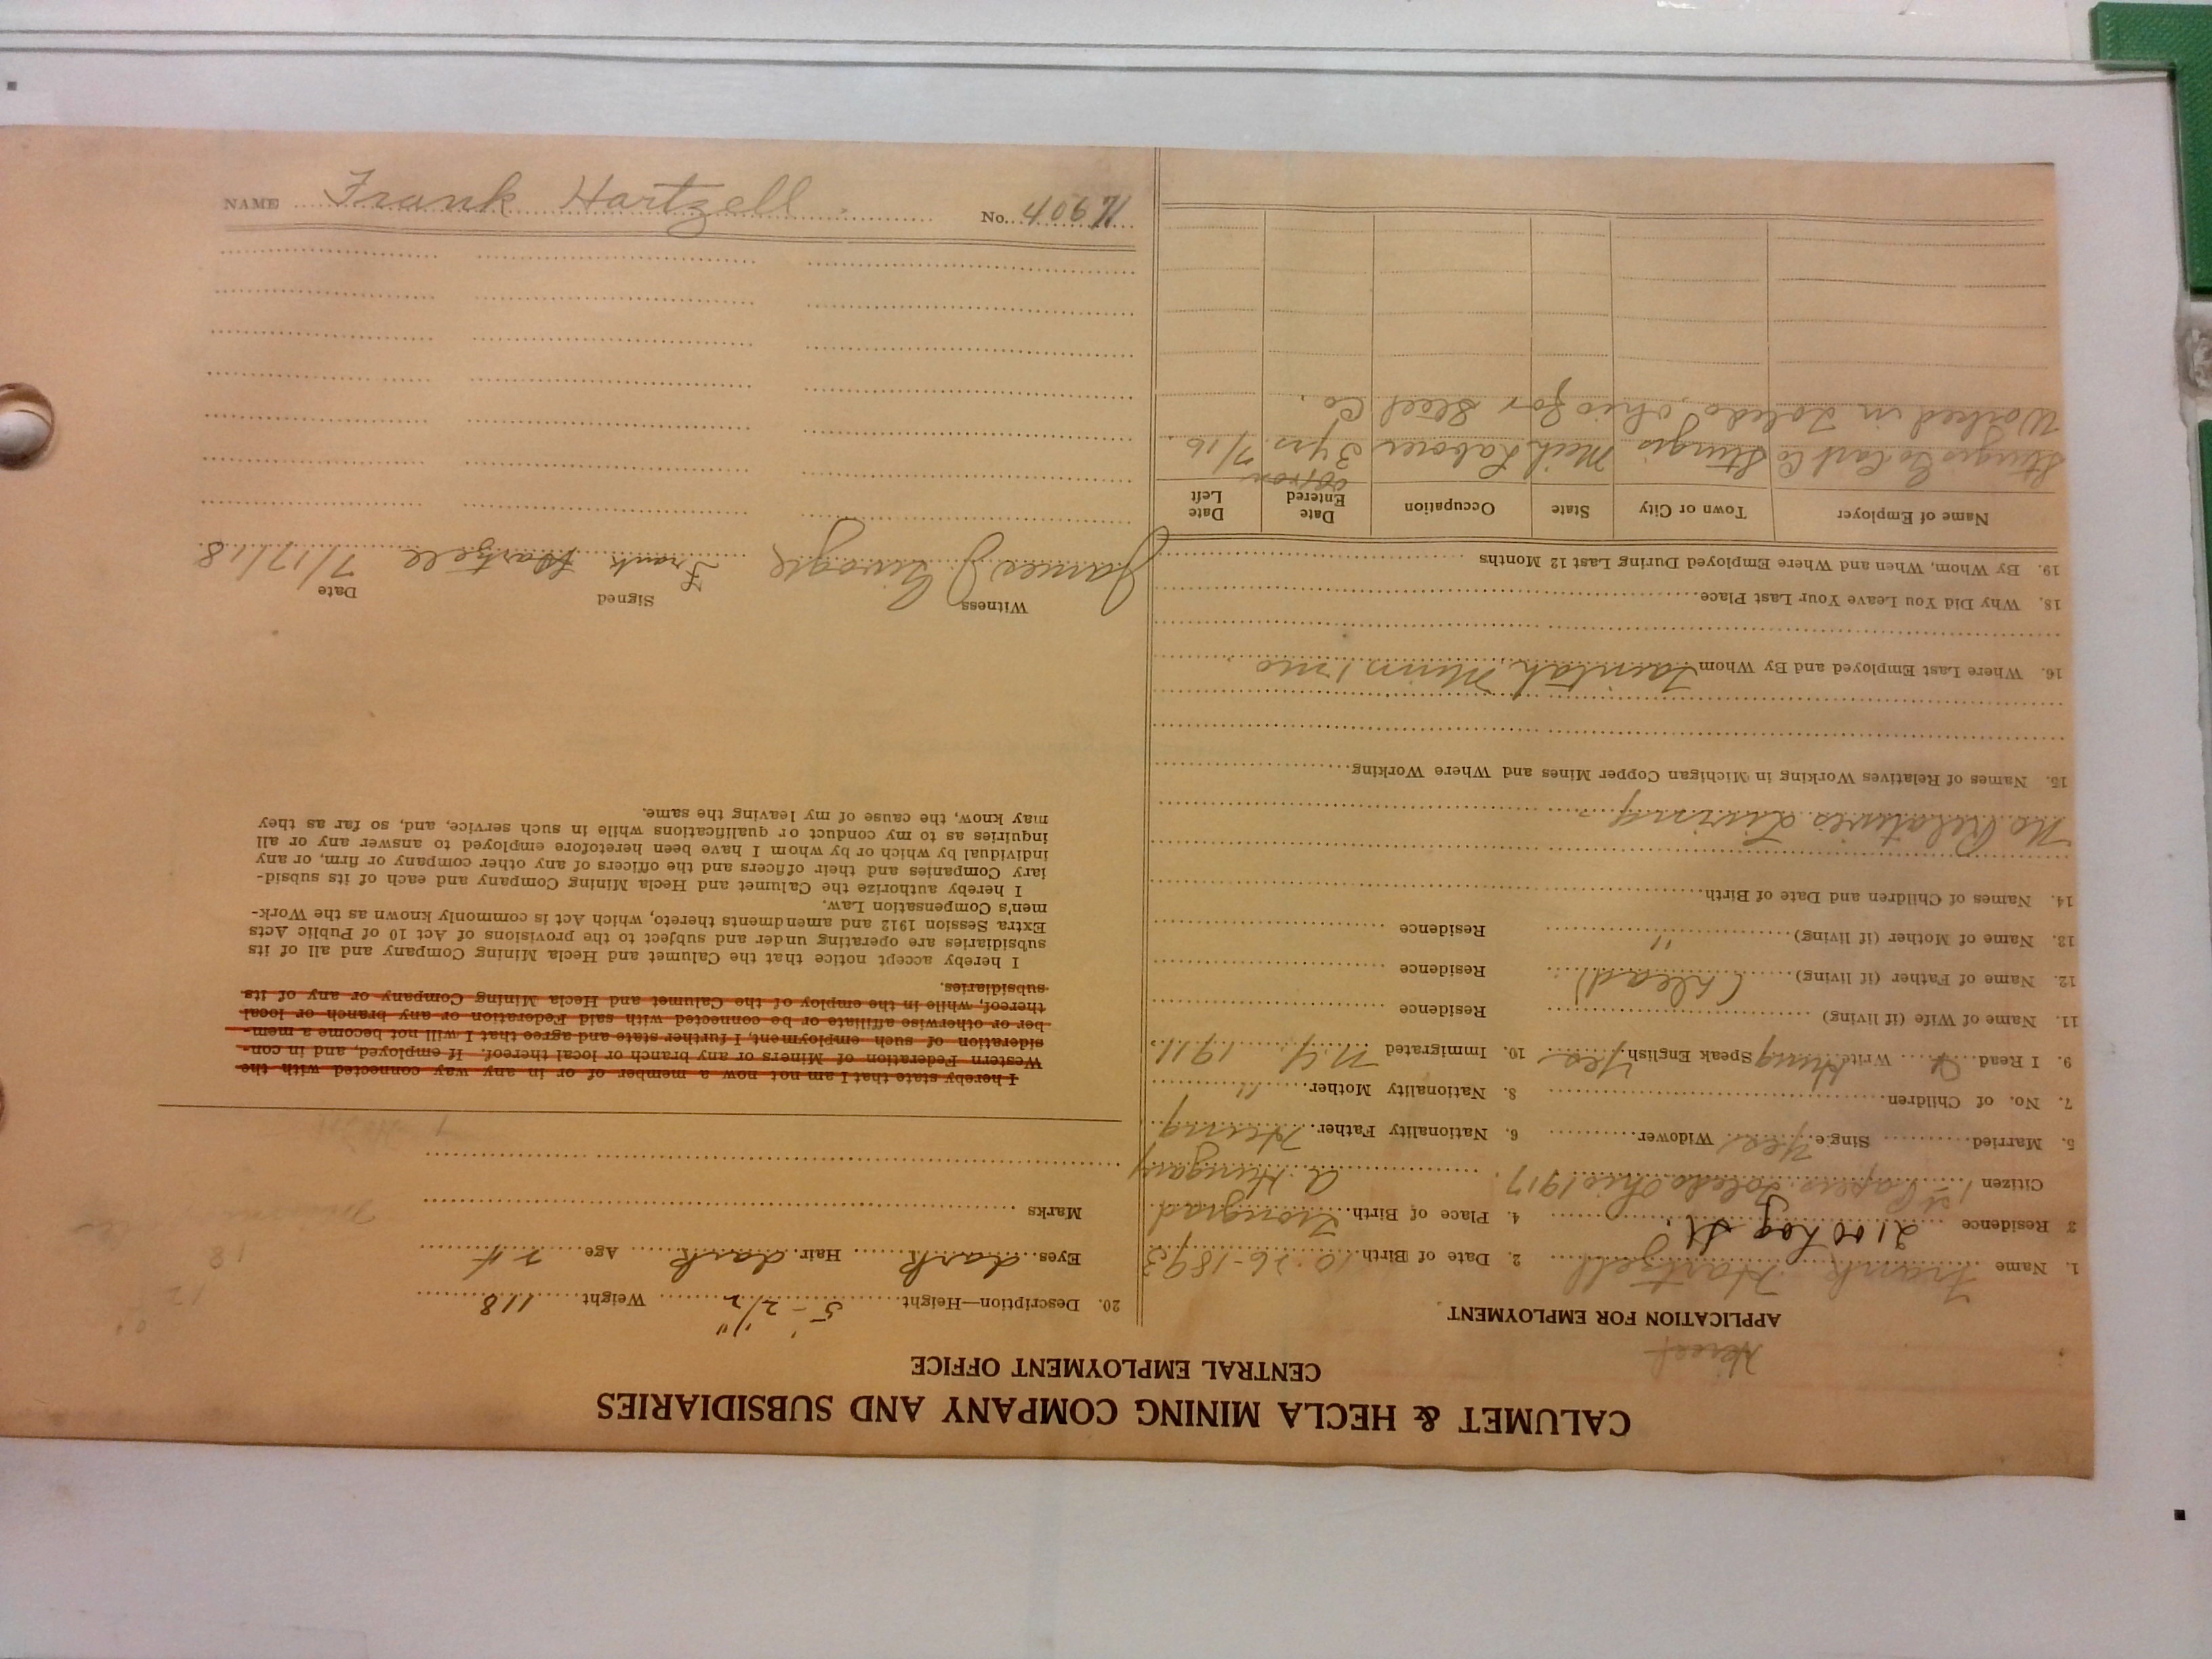 CALUMET & HECLA MINING COMPANY AND SUBSIDIARIES
CENTRAL EMPLOYMENT OFFICE
APPLICATION FOR EMPLOYMENT
1. Name Frank Hartzell 2. Date of Birth 10-26-1893
3 Residence 2100 Log St. 4. Place of Birth
Citizen 1st Papers Toledo Ohio 1917. Hungary
5. Married Single Yes Widower 6. Nationality Father Hung
7. No. of Children 8. Nationality Mother "
9. I Read Write Hung Speak English Yes 10. Immigrated N.Y. 1911.
11. Name of Wife (if living) Residence
12. Name of Father (if living) (Dead) Residence
13. Name of Mother (if living) " Residence
14. Names of Children and Date of Birth
No Relatives Living
15. Names of Relatives Working in Michigan Copper Mines and Where Working
16. Where Last Employed and By Whom Minn 1 mo
18. Why Did You Leave Your Last Place
19. By Whom, When and Where Employed During Last 12 Months
Name of Employer Town or City State Occupation Date Entered Date Left
Sturgis Go Cart Co Sturgis Mich Laborer 3 yrs 7/16.
Worked in Toledo, Ohio for Steel Co.
20. Description—Height 5'-2 1/2" Weight 118
Eyes dark Hair dark Age 24
Marks
I hereby state that I am not now a member of or in any way connected with the
Western Federation of Miners or any branch or local thereof. If employed, and in con-
sideration of such employment, I further state and agree that I will not become a mem-
ber or otherwise affiliate or be connected with said Federation or any branch or local
thereof, while in the employ of the Calumet and Hecla Mining Company or any of its
subsidiaries.
I hereby accept notice that the Calumet and Hecla Mining Company and all of its
subsidiaries are operating under and subject to the provisions of Act 10 of Public Acts
Extra Session 1912 and amendments thereto, which Act is commonly known as the Work-
men's Compensation Law.
I hereby authorize the Calumet and Hecla Mining Company and each of its subsid-
iary Companies and their officers and the officers of any other company or firm, or any
individual by which or by whom I have been heretofore employed to answer any or all
inquiries as to my conduct or qualifications while in such service, and, so far as they
may know, the cause of my leaving the same.
Witness Signed Date
James J. Frank Hartzell 7/17/18
NAME Frank Hartzell. No. 40671